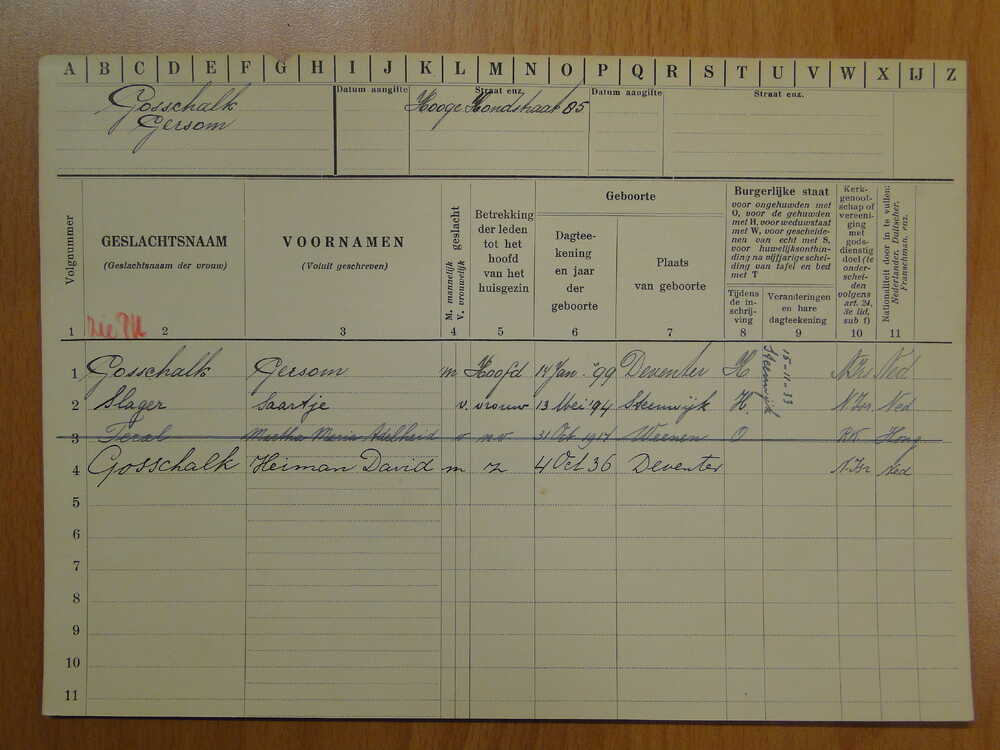 A B C D E F G H I J K L M N O P Q R S T U V W X IJ Z
Gosschalk
Gersom
Datum aangifte
Straat enz.
Hooge Hondstraat 85
Datum aangifte
Straat enz.
Volgnummer
GESLACHTSNAAM
(Geslachtsnaam der vrouw)
VOORNAMEN
(Voluit geschreven)
M. mannelijk
V. vrouwelijk
geslacht
Betrekking
der leden
tot het
hoofd
van het
huisgezin
Geboorte
Dagtee-
kening
en jaar
der
geboorte
Plaats
van geboorte
Burgerlijke staat
voor ongehuwden met
O, voor de gehuwden
met H, voor weduwstaat
met W, voor gescheide-
nen van echt met S,
voor huwelijksonthin-
ding na vijfjarige schei-
ding van tafel en bed
met T
Tijdens
de in-
schrij-
ving
Veranderingen
en hare
dagteekening
Kerk-
genoot-
schap of
vereeni-
ging
met
gods-
dienstig
doel (te
onder-
schei-
den
volgens
art. 24,
3e lid,
sub f)
Nationaliteit door in te vullen:
Nederlander, Duitscher,
Franschman, enz.
1 zie PK 2 3 4 5 6 7 8 9 10 11
1 Gosschalk Gersom m Hoofd 14 Jan. '99 Deventer H 15-11-33 Steenwijk N.Isr Ned
2 Slager Saartje v. vrouw 13 Mei '94 Steenwijk H. N.Isr. Ned
3 Martha Maria Adelheid v 31 Oct 1914 Weenen O RK Hong
4 Gosschalk Heiman David m z 4 Oct 36 Deventer N.Isr Ned
5
6
7
8
9
10
11